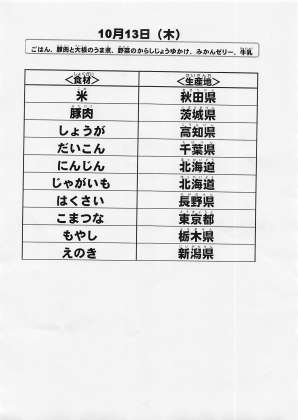 10月13日（木）
ごはん、豚肉と大根のうま煮、野菜のからしじょうゆかけ、みかんゼリー、牛乳
＜食材＞ ＜生産地＞
米 秋田県
豚肉 茨城県
しょうが 高知県
だいこん 千葉県
にんじん 北海道
じゃがいも 北海道
はくさい 長野県
こまつな 東京都
もやし 栃木県
えのき 新潟県